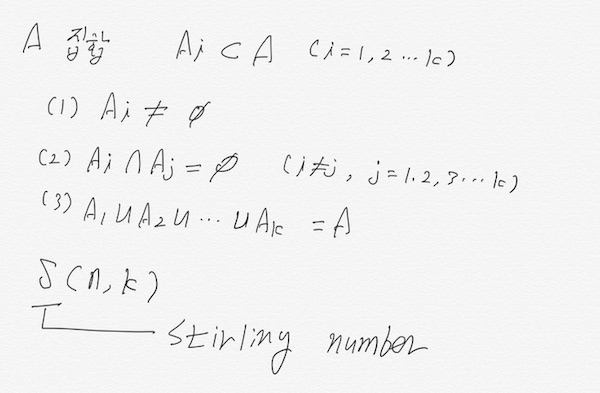 A 집합 Ai ⊂ A (i=1,2…k)
(1) Ai ≠ ∅
(2) Ai ∩ Aj = ∅ (i≠j, j=1.2,3…k)
(3) A1 ∪ A2 ∪ … ∪ Ak = A
S(n,k)
Stirling number